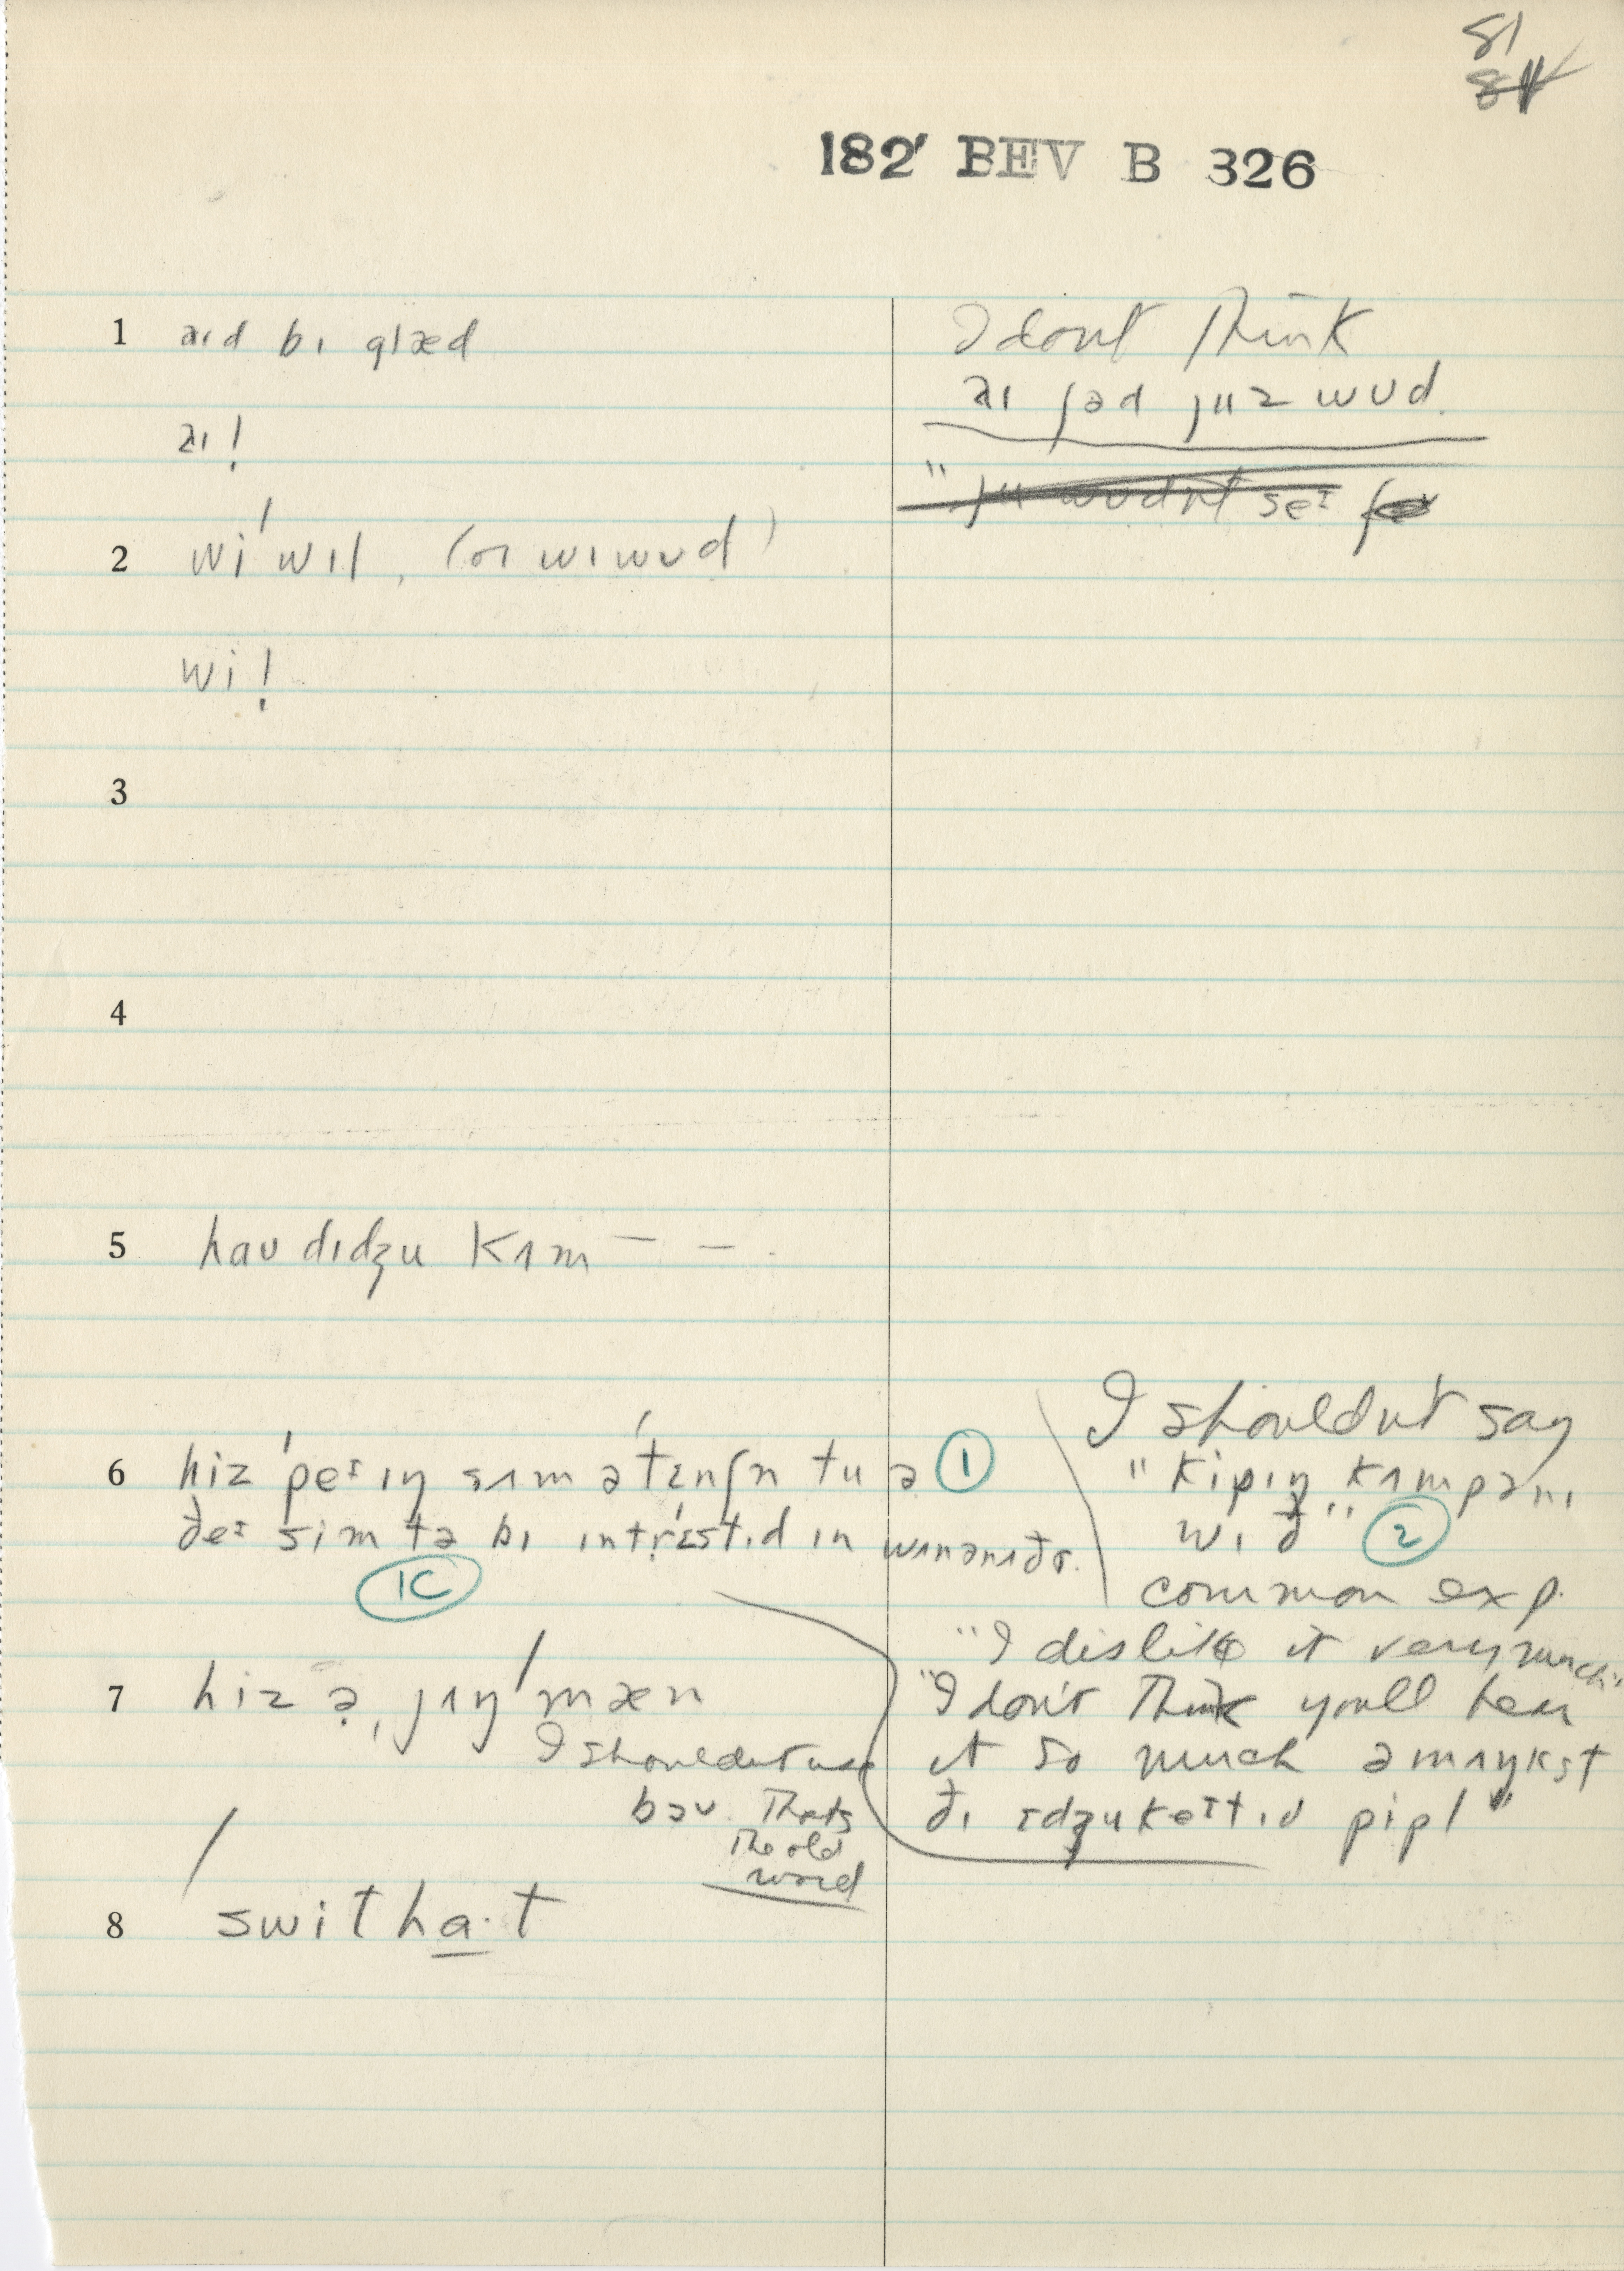 81
182' BEV B 326
1 aɪd bɪ glæd
aɪ!
2 wi'wɪl, (or wɪwʊd)
wi!
3
4
5 haʊ dɪdʒu kʌm — —
6 hiz 'peɪɪŋ sʌm ə'tɛnʃn tu ə ①
ðeɪ sim tə bɪ ɪntrɛstɪd ɪn wʌnənʌðɚ.
1C
7 hiz ə jʌŋ'mæn
I shouldnt use
bəʊ. Thats
the old
word
8 swithɑ·t
I dont think
aɪ ʃəd juz wʊd.
" ju wʊdnt seɪ
I shouldnt say
" kipɪŋ kʌmpənɪ
wɪð" ②
common exp.
"I dislike it very much"
"I don't think youll hear
it so much əmʌŋkst
ðɪ ɛdʒukeɪtɪd pipl"